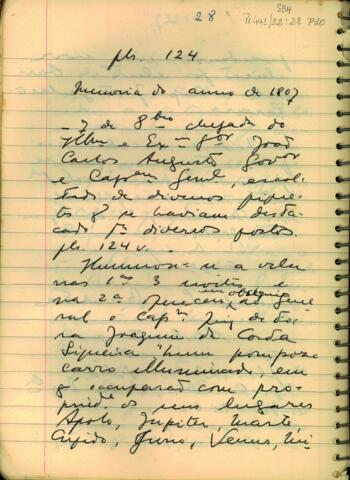 28
SBH
Pi 441/22:28 P30
fls. 124
Memoria do anno de 1807
– 7 de 8bro chegada do
Illmo e Exmo Snr João
Carlos Augusto Govor
e Capam Genl, escol-
tado de diversos pique-
tes q' se haviam desta-
cado pa diversos postos.
fls. 124 v.
Illuminou-se a villa
nas 1as 3 noites e
na 2a em obsequio ao Gene-
ral o Capm
na Joaquim da Costa
Siqueira "hum pompozo
carro illuminado em
q' occuparão com pro-
pride os seus lugares
Apolo, Jupiter, Marte,
Cupido, Juno, Venus, Mi-